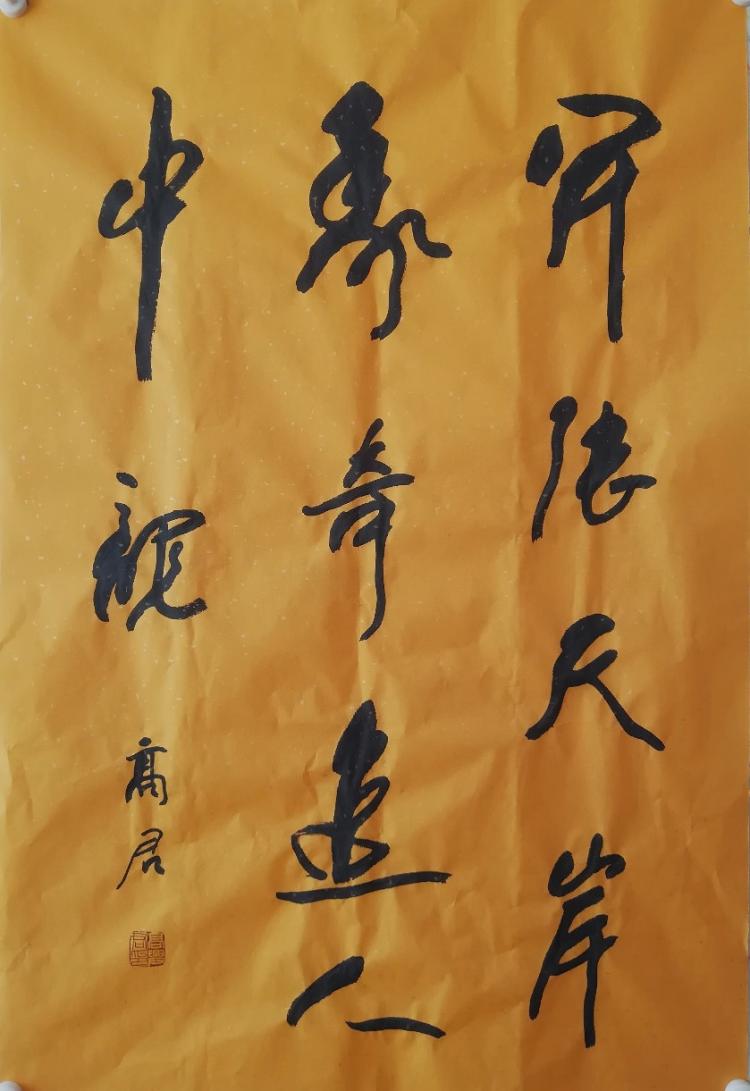 開張天岸
馬奇逸人
中龍
高君